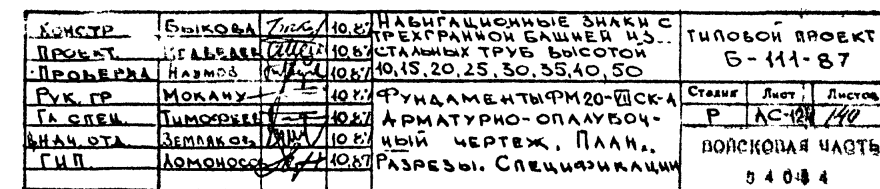 Констр. Быкова 10.87
Проект. 10.87
Проверил Наумов 10.87
Рук. гр Мокану 10.87
Гл. спец. Тимофеев 10.87
Нач. отд. Земляков 10.87
ГИП Ломоносов 10.87
Навигационные знаки с
трехгранной башней из
стальных труб высотой
10,15,20,25,30,35,40,50
Фундаменты ФМ20-VII СК-А
Арматурно-опалубоч-
ный чертеж. План.
Разрезы. Спецификации
Типовой проект
Б-111-87
Стадия Лист Листов
Р АС-124 140
Войсковая часть